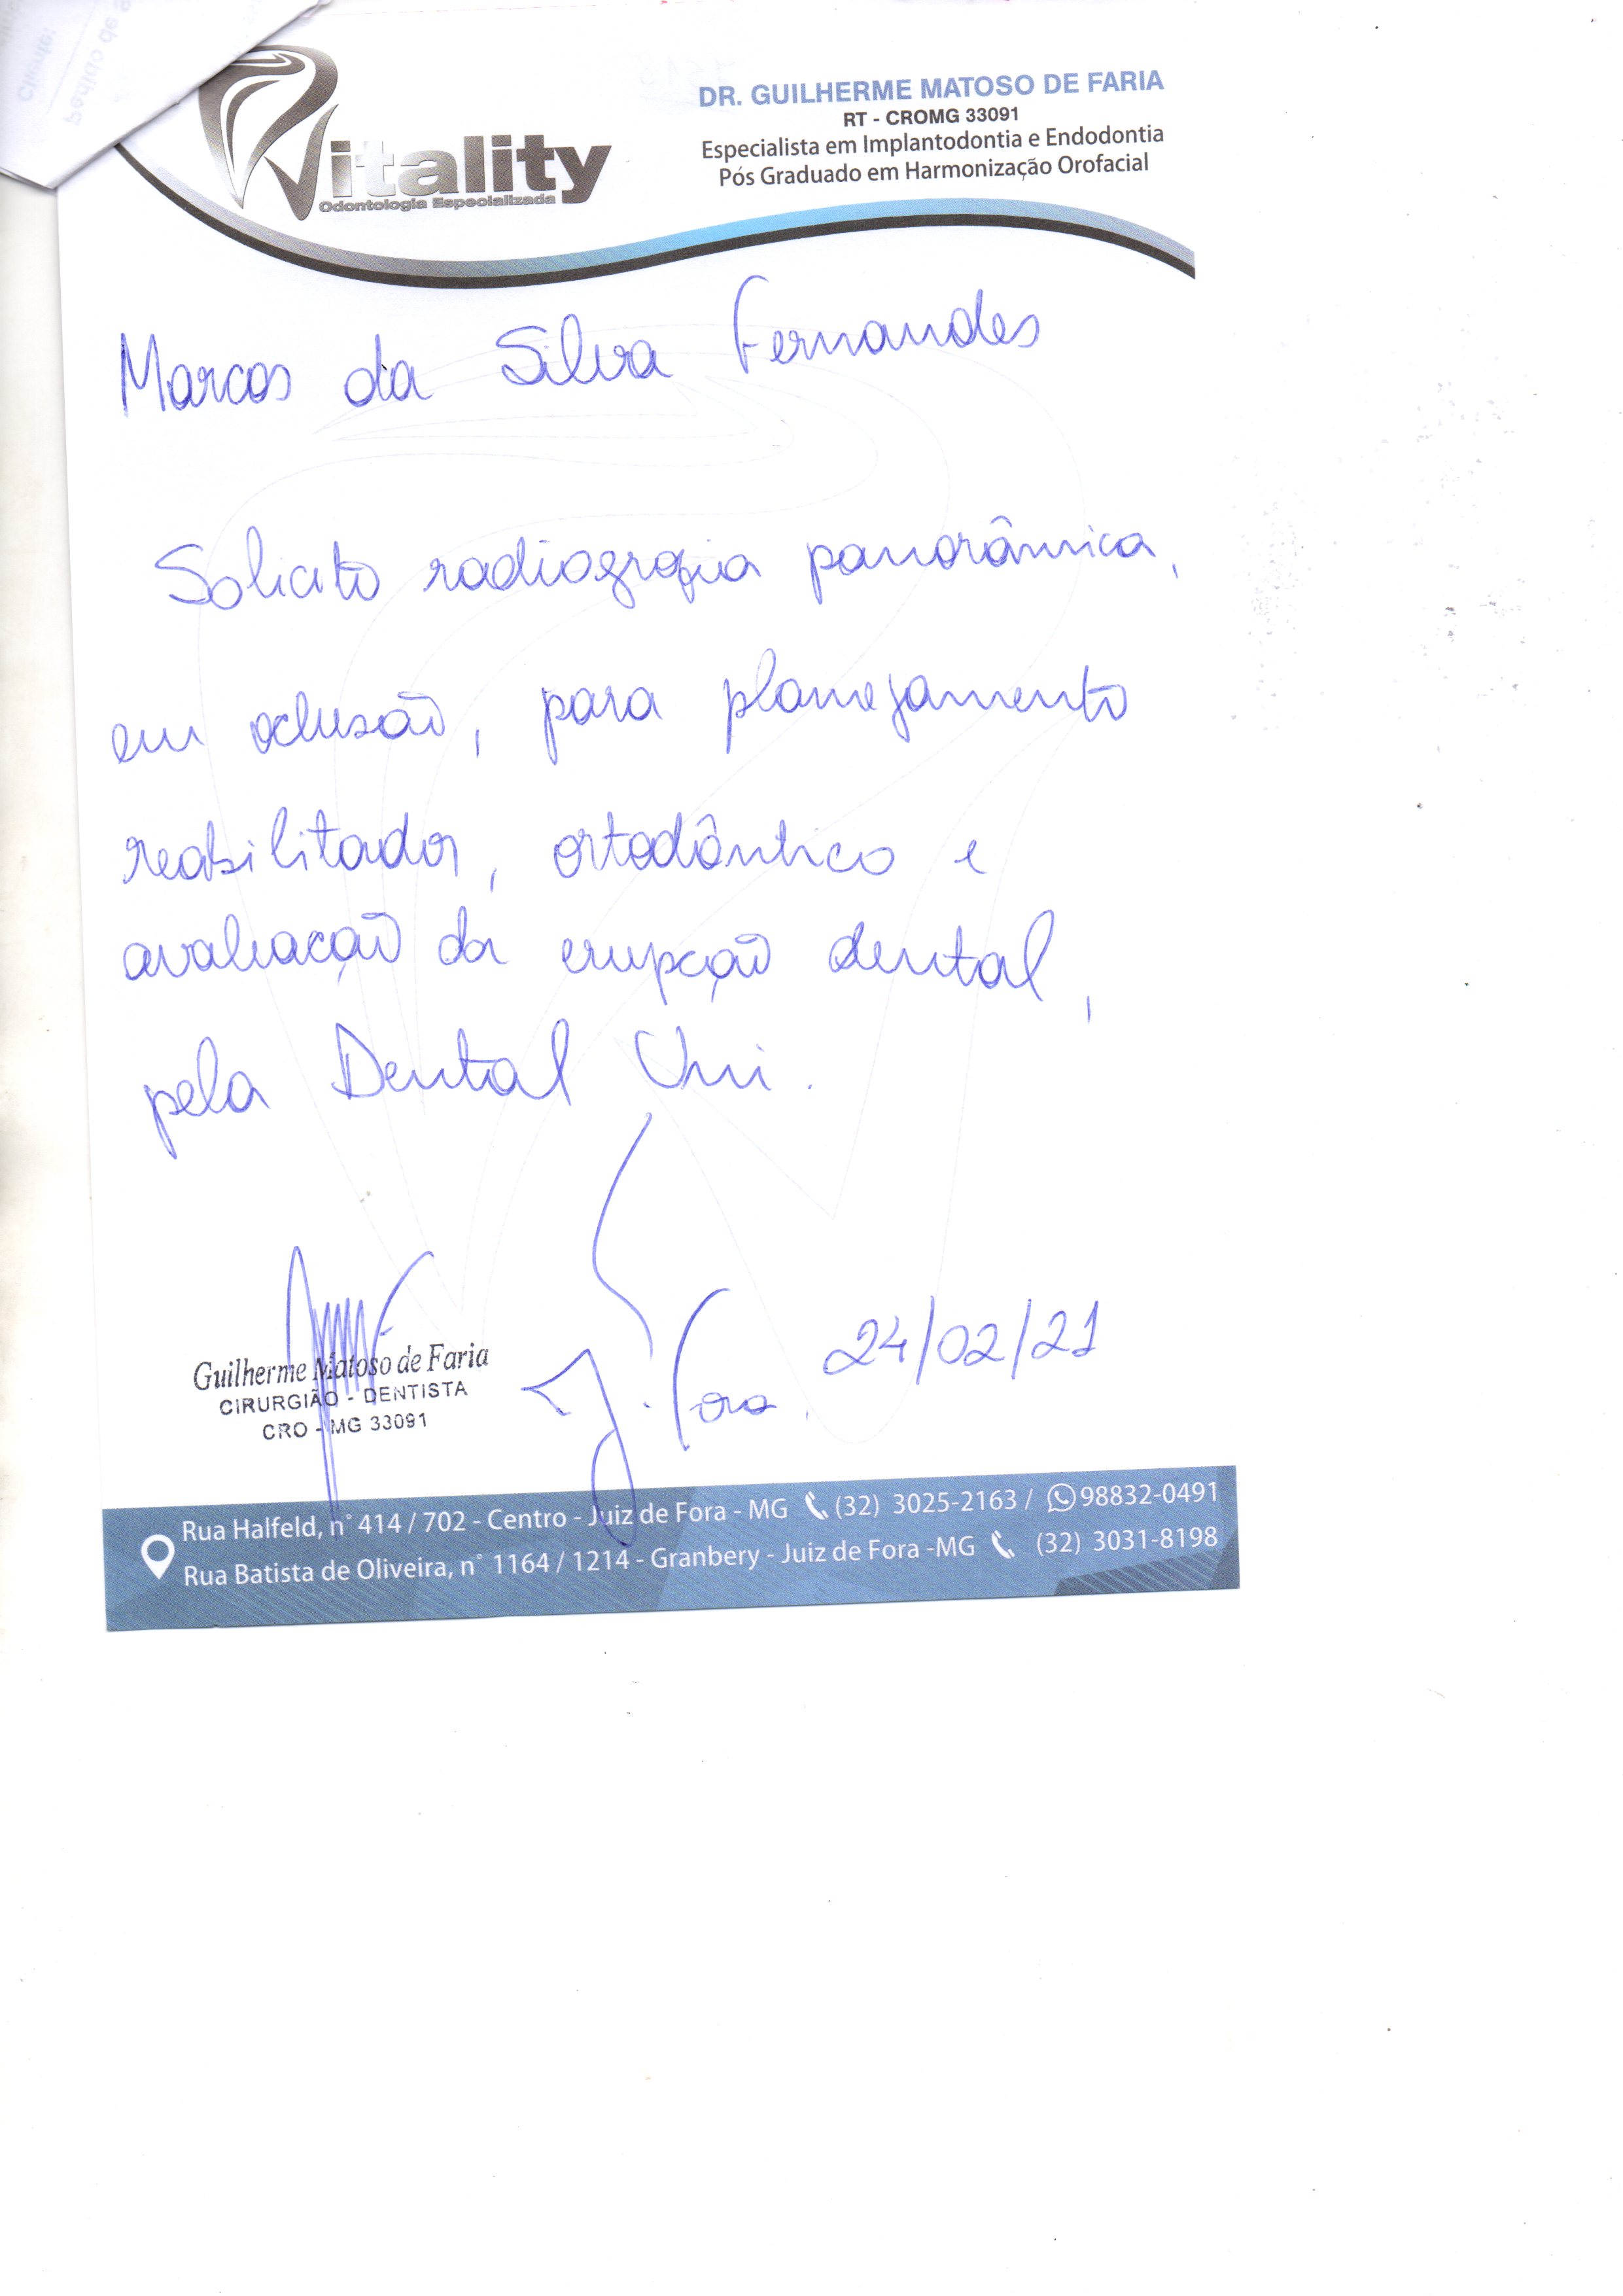 Vitality
Odontologia Especializada
DR. GUILHERME MATOSO DE FARIA
RT - CROMG 33091
Especialista em Implantodontia e Endodontia
Pós Graduado em Harmonização Orofacial
Marcos da Silva Fernandes
Solicito radiografia panorâmica,
em oclusão, para planejamento
reabilitador, ortodôntico e
avaliação da erupção dental,
pela Dental Uni.
Guilherme Matoso de Faria
CIRURGIÃO - DENTISTA
CRO - MG 33091
J. Fora, 24/02/21
Rua Halfeld, n° 414 / 702 - Centro - Juiz de Fora - MG (32) 3025-2163 / 98832-0491
Rua Batista de Oliveira, n° 1164 / 1214 - Granbery - Juiz de Fora -MG (32) 3031-8198